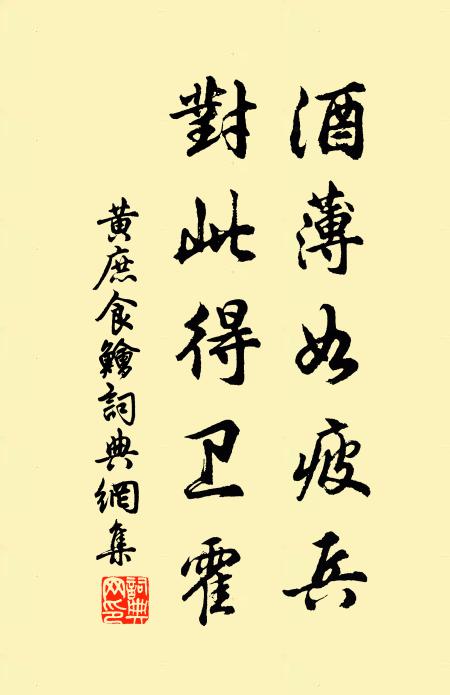 酒薄如疲兵
對此得卫霍
黄庶食鱠詞典網集